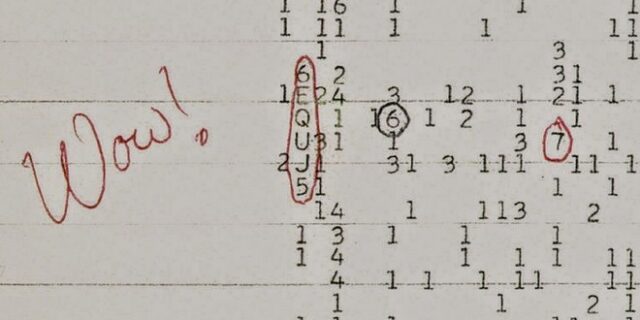 1 16 1 1 1
1 11 1 1 11
1 3 1
6 2 31
1 E 24 3 12 1 21 1
Q 1 16 1 2 1 1
Wow! U 31 1 3 7 1
2 J 1 31 3 111 11 1
5 1 1 1
14 1 113 2
1 3 1 1 1
1 4 1 1 1 11
4 1 1 1 11 11
1 1 2 1